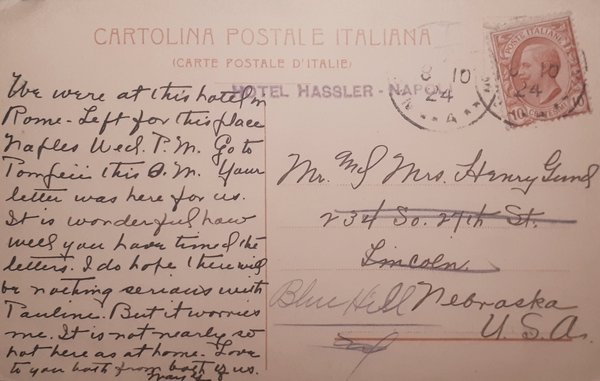 CARTOLINA POSTALE ITALIANA
(CARTE POSTALE D'ITALIE)
HOTEL HASSLER - NAPOLI
8 10
24
N ** A **
8 10
24
POSTE ITALIANE
10 CENTESIMI 10
We were at this hotel in
Rome - Left for this place
Naples Wed. P.M. Go to
Pompeii this A.M. Your
letter was here for us.
It is wonderful how
well you have timed the
letters. I do hope there will
be nothing serious with
Pauline. But it worries
me. It is not nearly so
hot here as at home. Love
to you both from both of us.
Mr. and Mrs. Henry Gund
234 So. 27th St.
Lincoln.
Blue Hill Nebraska
U.S.A.